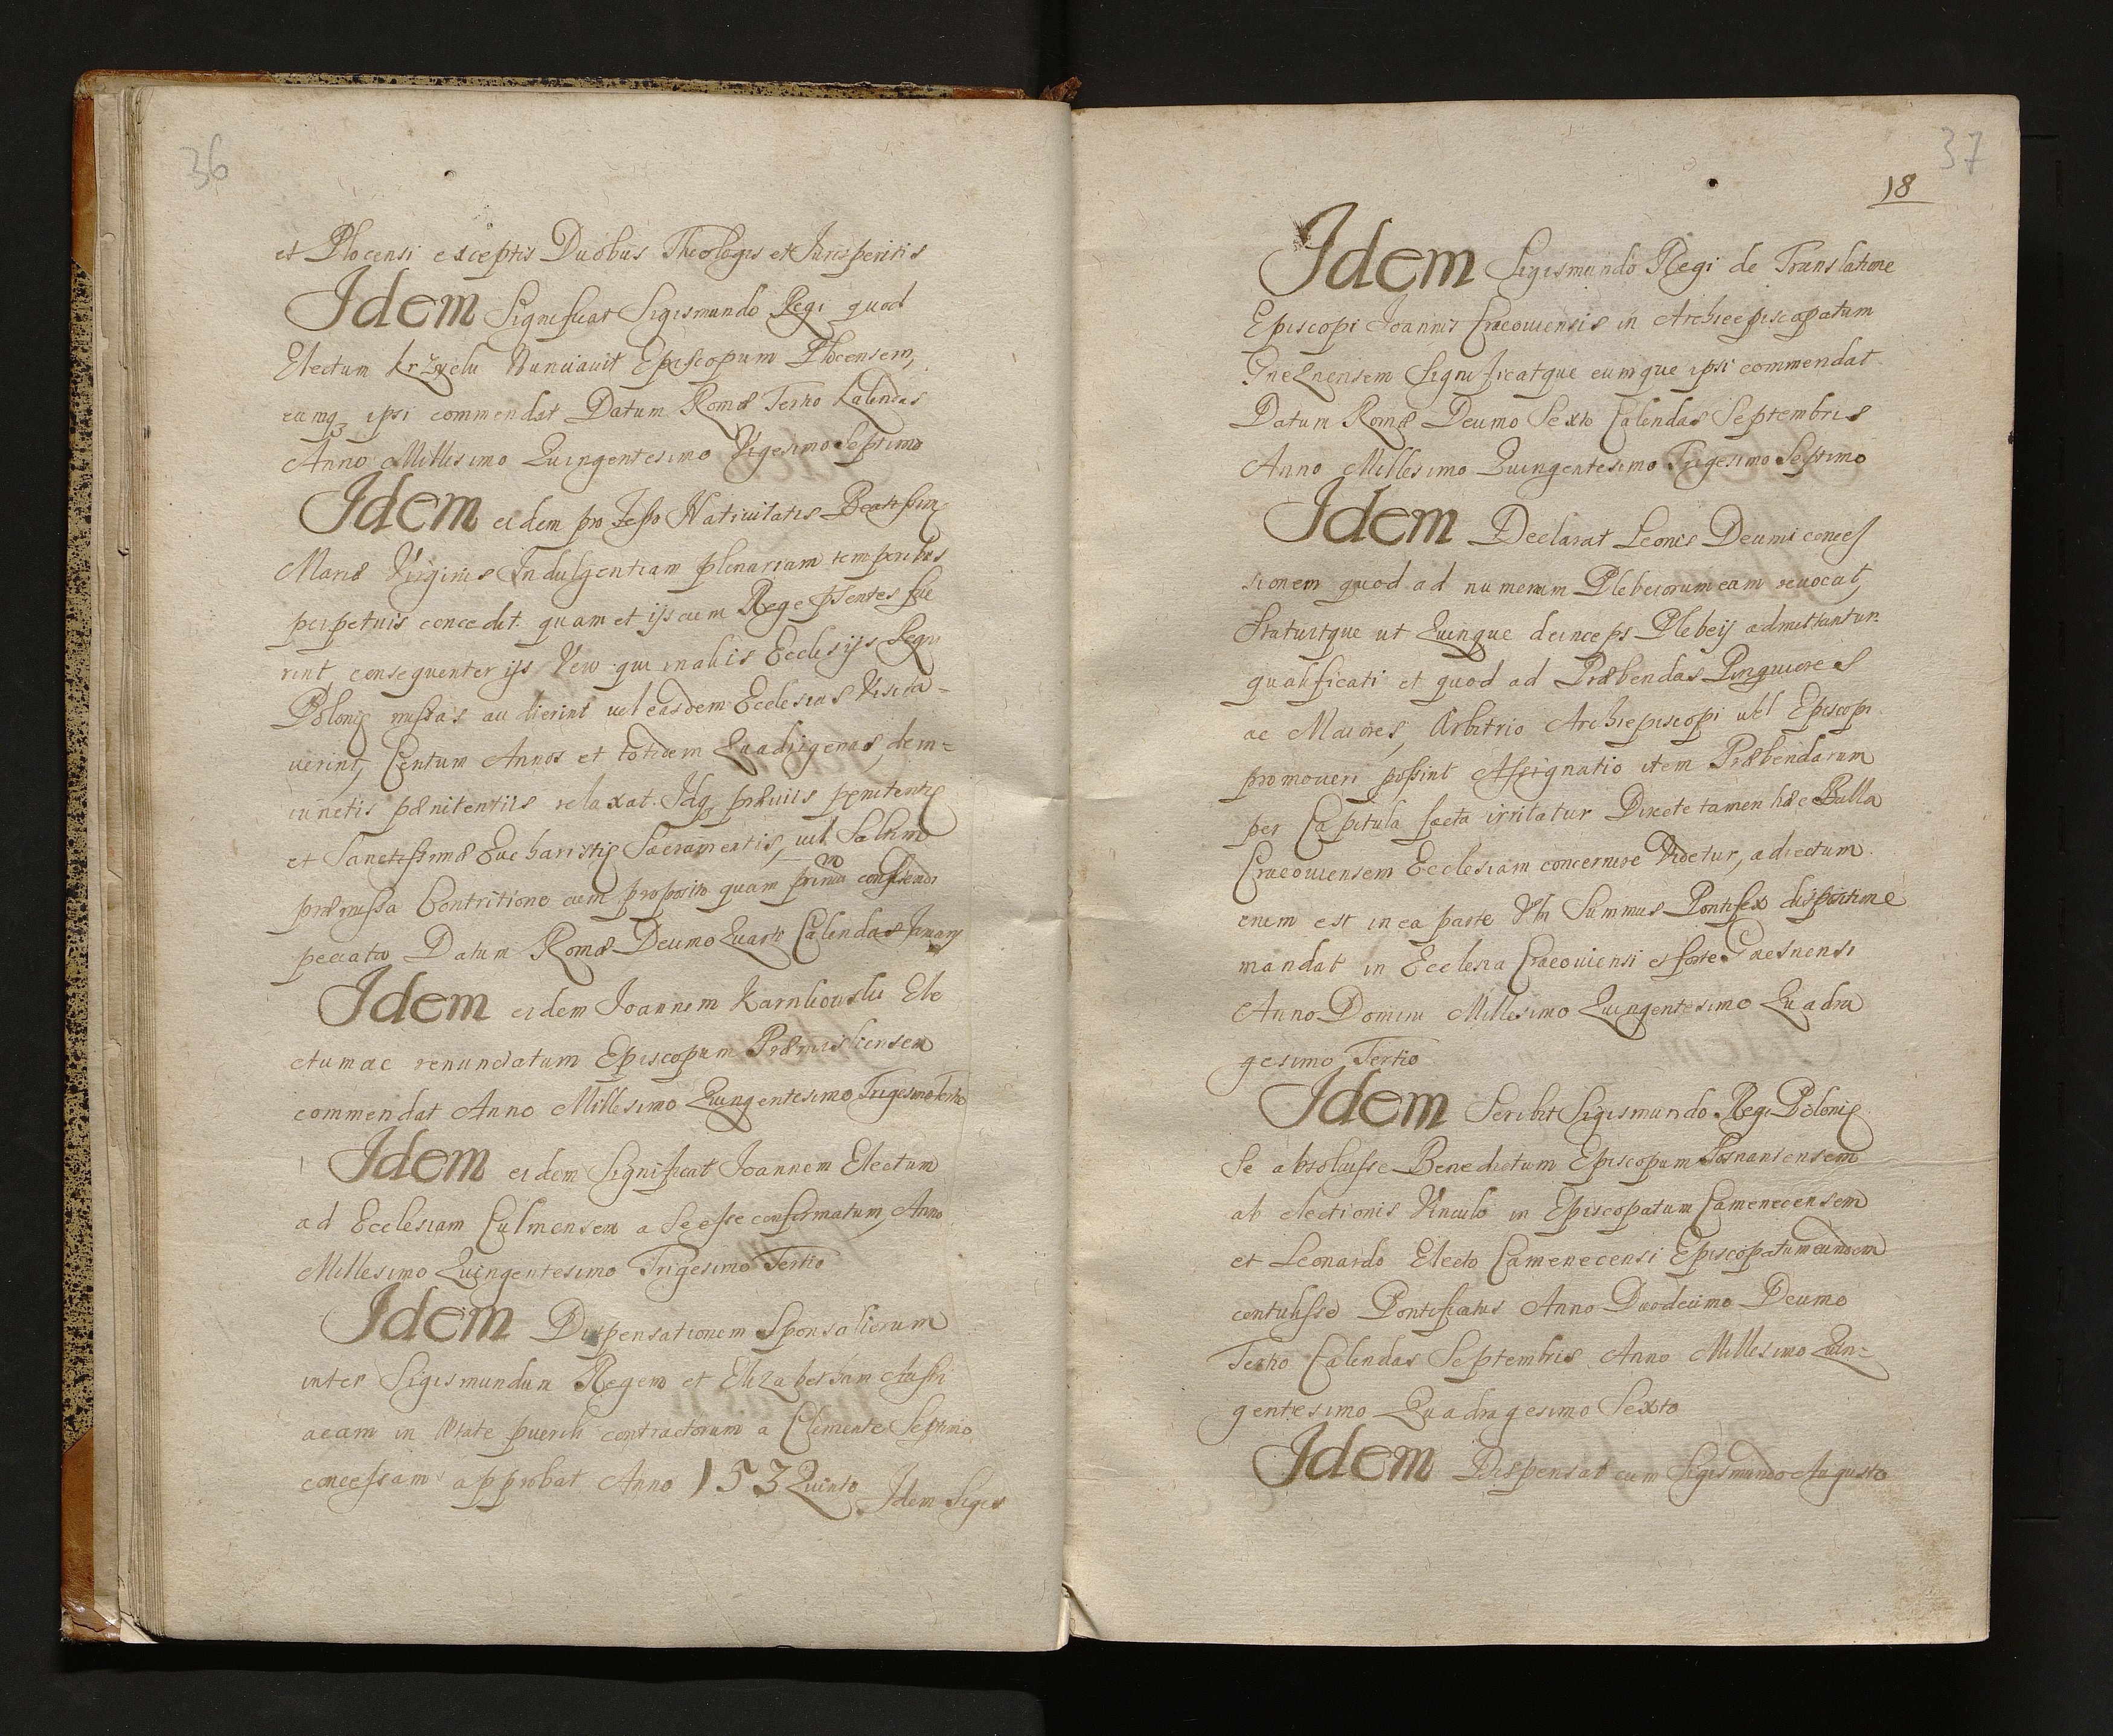 36
et Plocensi exceptis Duobus Theologis et Jurisperitis
Idem Significat Sigismundo Regi quod
Electum Krzyclu Nunciauit Episcopum Plocensem,
eumq3 ipsi commendat Datum Romæ Tertio Kalendas
Anno Millesimo Quingentesimo Vigesimo Septimo
Idem eidem pro Festo Natiuitatis Beatissimę
Mariæ Virginis Indulgentiam plenariam temporibus
perpetuis concedit quam et ijs cum Rege psentes fue
rint, consequenter ijs Vero qui in aliis Ecclesijs Regni
Polonię missas audierint uel easdem Ecclesias Visita-
uerint, Centum Annos et totidem Quadrigenas, dein=
iunctis pænitentiis relaxat. Idq3 præuiis pęnitentię
et Sanctissimæ Eucharistię Sacramentis, uel Saltim
præmissa Contritione cum proposito quam primum confitendi
peccato Datum Romæ Decimo Quarto Calendas Januarij
Idem eidem Joannem Karnkouski Ele
ctum ac renunciatum Episcopum Præmisliensem
commendat Anno Millesimo Quingentesimo Trigesimo Tertio
Idem eidem Significat Joannem Electum
ad Ecclesiam Culmensem a Se esse confirmatum, Anno
Millesimo Quingentesimo Trigesimo Tertio
Idem Dispensationem Sponsaliorum
inter Sigismundum Regem et Elizabetham Austri
acam in Ætate puerili contractorum a Clemente Septimo
concessam approbat Anno 153 Quinto
Idem Sigis
37
18
Idem Sigismundo Regi de Translatione
Episcopi Joannis Cracouiensis in Archiepiscopatum
Gneznensem Significatque eumque ipsi commendat
Datum Romæ Decimo Sexto Calendas Septembris
Anno Millesimo Quingentesimo Trigesimo Septimo
Idem Declarat Leonis Decimi conces
sionem quod ad numerum Plebeiorum eam reuocat,
Statuitque ut Quinque deinceps Plebeij admittantur
qualificati et quod ad Præbendas Pinguiores
ac Maiores, Arbitrio Archiepiscopi uel Episcopi
promoueri possint Assignatio item Præbendarum
per Capitula facta irritatur Directe tamen hæc Bulla
Cracouiensem Ecclesiam concernere Videtur, adiectum
enim est in ea parte Vbi Summus Pontifex dispositione
mandat in Ecclesia Cracouiensi et forte Gnesnensi
Anno Domini Millesimo Quingentesimo Quadra
gesimo Tertio
Idem Scribit Sigismundo Regi Polonię
Se absoluisse Benedictum Episcopum Posnaniensem
ab electionis Vinculo in Episcopatum Camenecensem
et Leonardo Electo Camenecensi Episcopatum eundem
contulisse Pontificatus Anno Duodecimo Decimo
Tertio Calendas Septembris Anno Millesimo Quin-
gentesimo Quadragesimo Sexto
Idem Dispensat cum Sigismundo Augusto